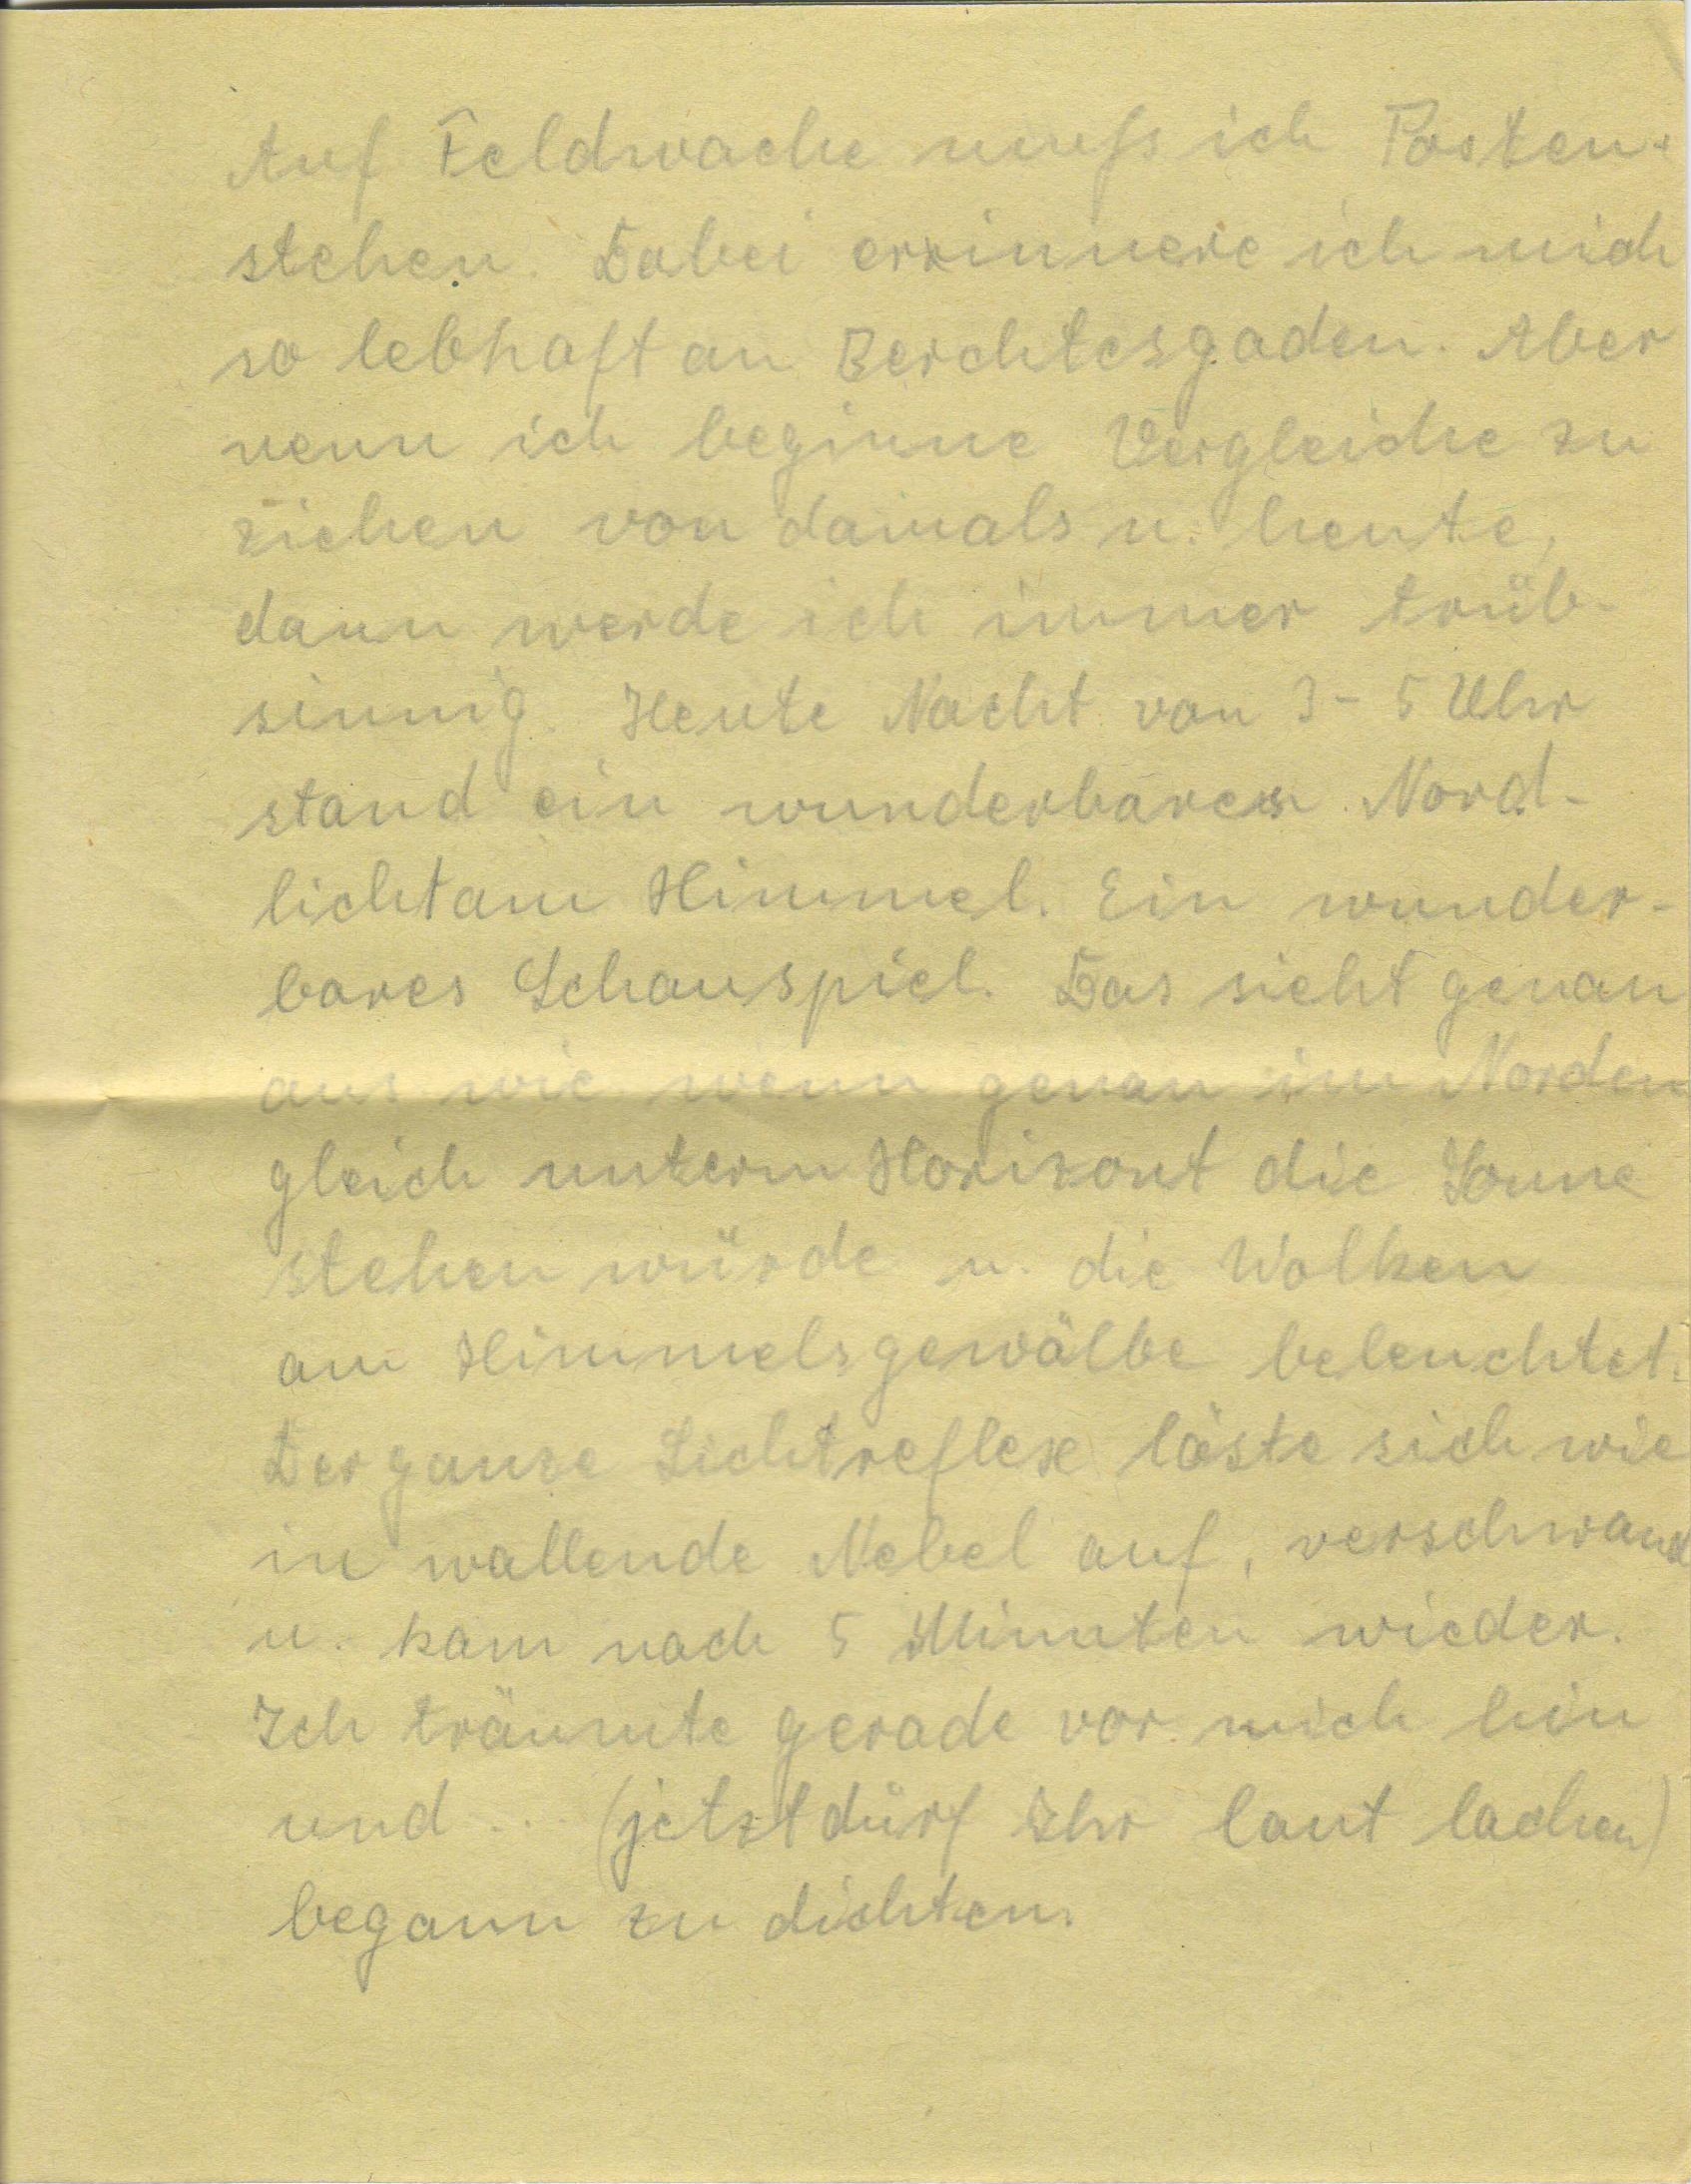 Auf Feldwache muß ich Posten-
stehen. Dabei errinnere ich mich
so lebhaft an Berchtesgaden. Aber
wenn ich beginne Vergleiche zu
ziehen von damals u. heute,
dann werde ich immer trüb-
sinnig. Heute Nacht von 3-5 Uhr
stand ein wunderbares Nord-
licht am Himmel. Ein wunder-
bares Schauspiel. Das sieht genau
aus wie wenn genau im Norden
gleich unterm Horizont die Sonne
stehen würde u. die Wolken
am Himmelsgewölbe beleuchtet.
Der ganze Lichtreflex löste sich wie
in wallende Nebel auf, verschwand
u. kam nach 5 Minuten wieder.
Ich träumte gerade vor mich hin
und ... (jetzt dürf Ihr laut lachen)
begann zu dichten.